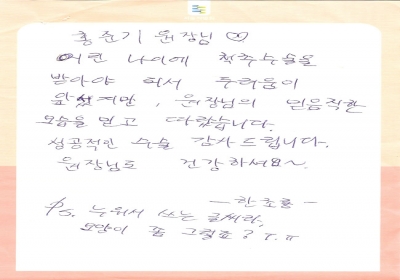 홍준기 원장님 ♡
어린 나이에 척추수술을
받아야 해서 두려움이
앞섰지만, 원장님의 믿음직한
모습을 믿고 따랐습니다.
성공적인 수술 감사드립니다.
원장님도 건강하세요~
- 한초롱 -
Ps. 누워서 쓰는 글씨라,
모양이 좀 그렇죠? T.π